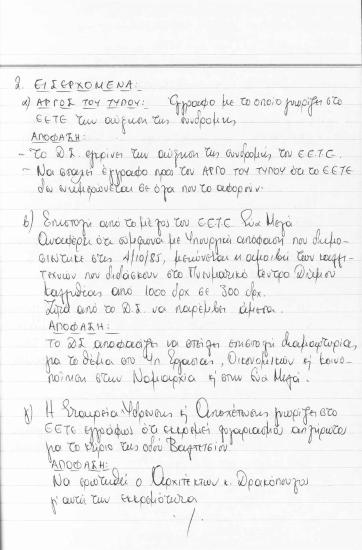 2. ΕΙΣΕΡΧΟΜΕΝΑ:
α) ΑΡΓΟΣ ΤΟΥ ΤΥΠΟΥ: Έγγραφο με το οποίο γνωρίζει στο
ΕΕΤΕ την αύξηση της συνδρομής.
ΑΠΟΦΑΣΗ:
- Το Δ.Σ. εγκρίνει την αύξηση της συνδρομής του Ε.Ε.Τ.Ε.
- Να σταλεί έγγραφο προς τον ΑΡΓΟ ΤΟΥ ΤΥΠΟΥ ότι το ΕΕΤΕ
θα ενημερώνεται σε όλα που το αφορούν.
b) Επιστολή από το μέλος του Ε.Ε.Τ.Ε. Εύα Μελά
Αναφέρει ότι σύμφωνα με Υπουργική απόφαση που δημο-
σιεύτηκε στις 4/10/85, μειώνεται η αμοιβή των καλλι-
τεχνών που διδάσκουν στο Πνευματικό Κέντρο Δήμου
Καλλιθέας από 1000 δρχ σε 300 δρχ.
Ζητά από το Δ.Σ. να παρέμβει άμεσα.
ΑΠΟΦΑΣΗ:
Το ΔΣ αποφασίζει να στείλει επιστολή διαμαρτυρίας,
για το θέμα στο Υπ. Εργασίας, Οικονομικών κ' κοινο-
ποίηση στην Νομαρχία κ' στην Εύα Μελά.
γ) Η Εταιρεία Ύδρευσης κ' Αποχέτευσης γνωρίζει στο
ΕΕΤΕ εγγράφως ότι εκκρεμεί λογαριασμός απλήρωτος
για το κτίριο της οδού Βαλτετσίου
ΑΠΟΦΑΣΗ:
Να ερωτηθεί ο Αρχιτέκτων κ. Δρακόπουλος
γι' αυτή την εκκρεμότητα
./.